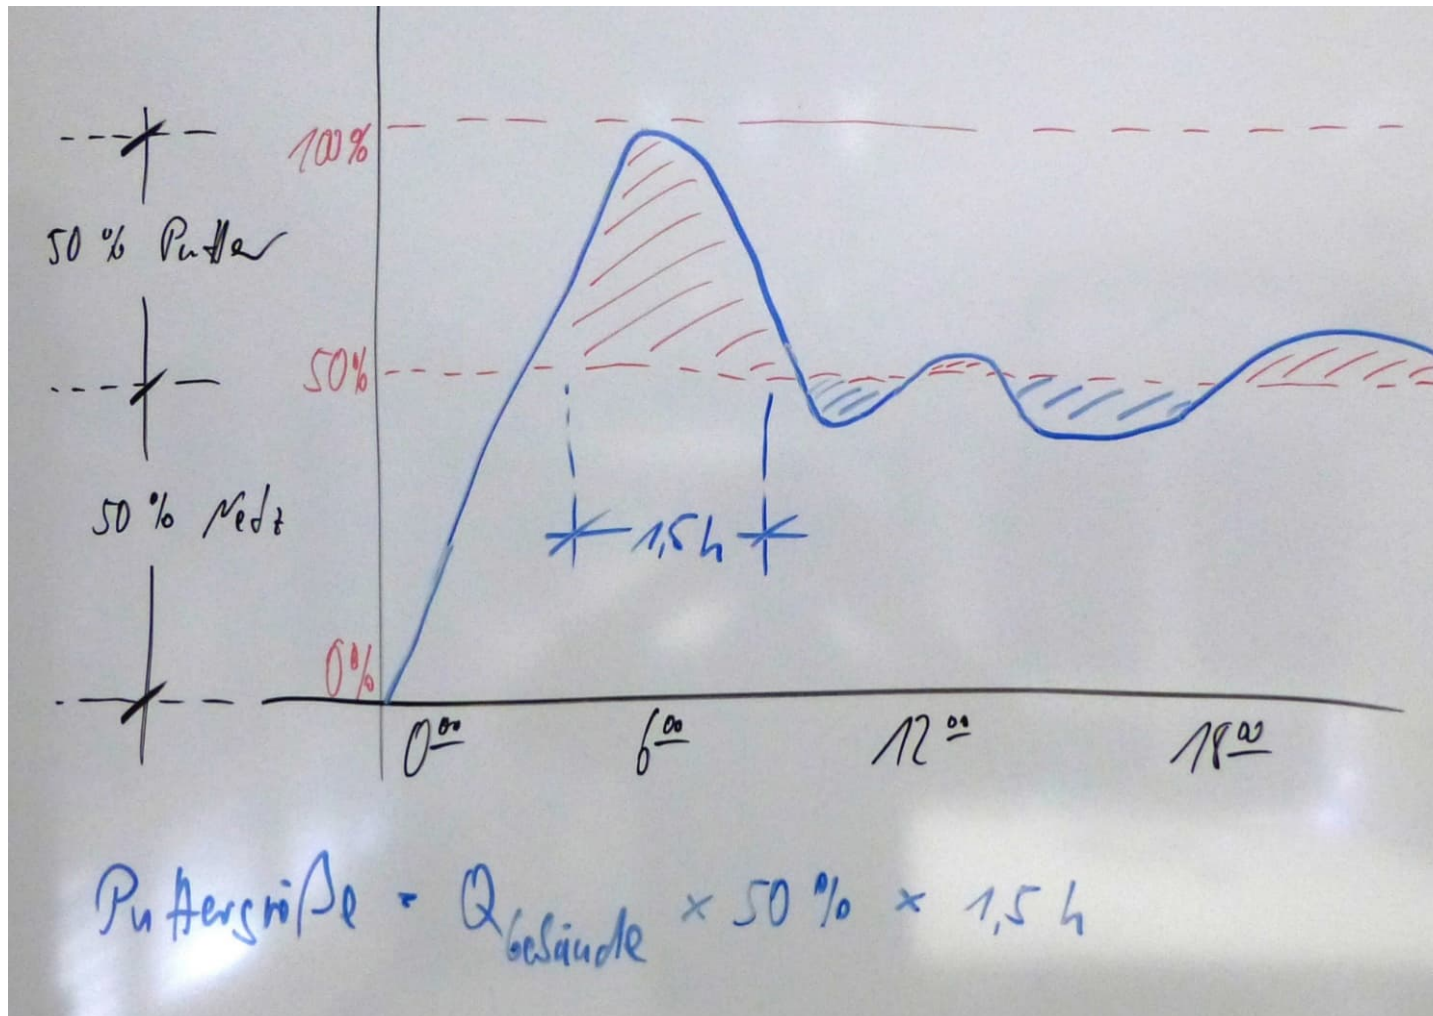 100%
50 % Puffer
50%
50 % Netz
1,5 h
0%
0 00
6 00
12 00
18 00
Puffergröße = Q Gebäude × 50 % × 1,5 h